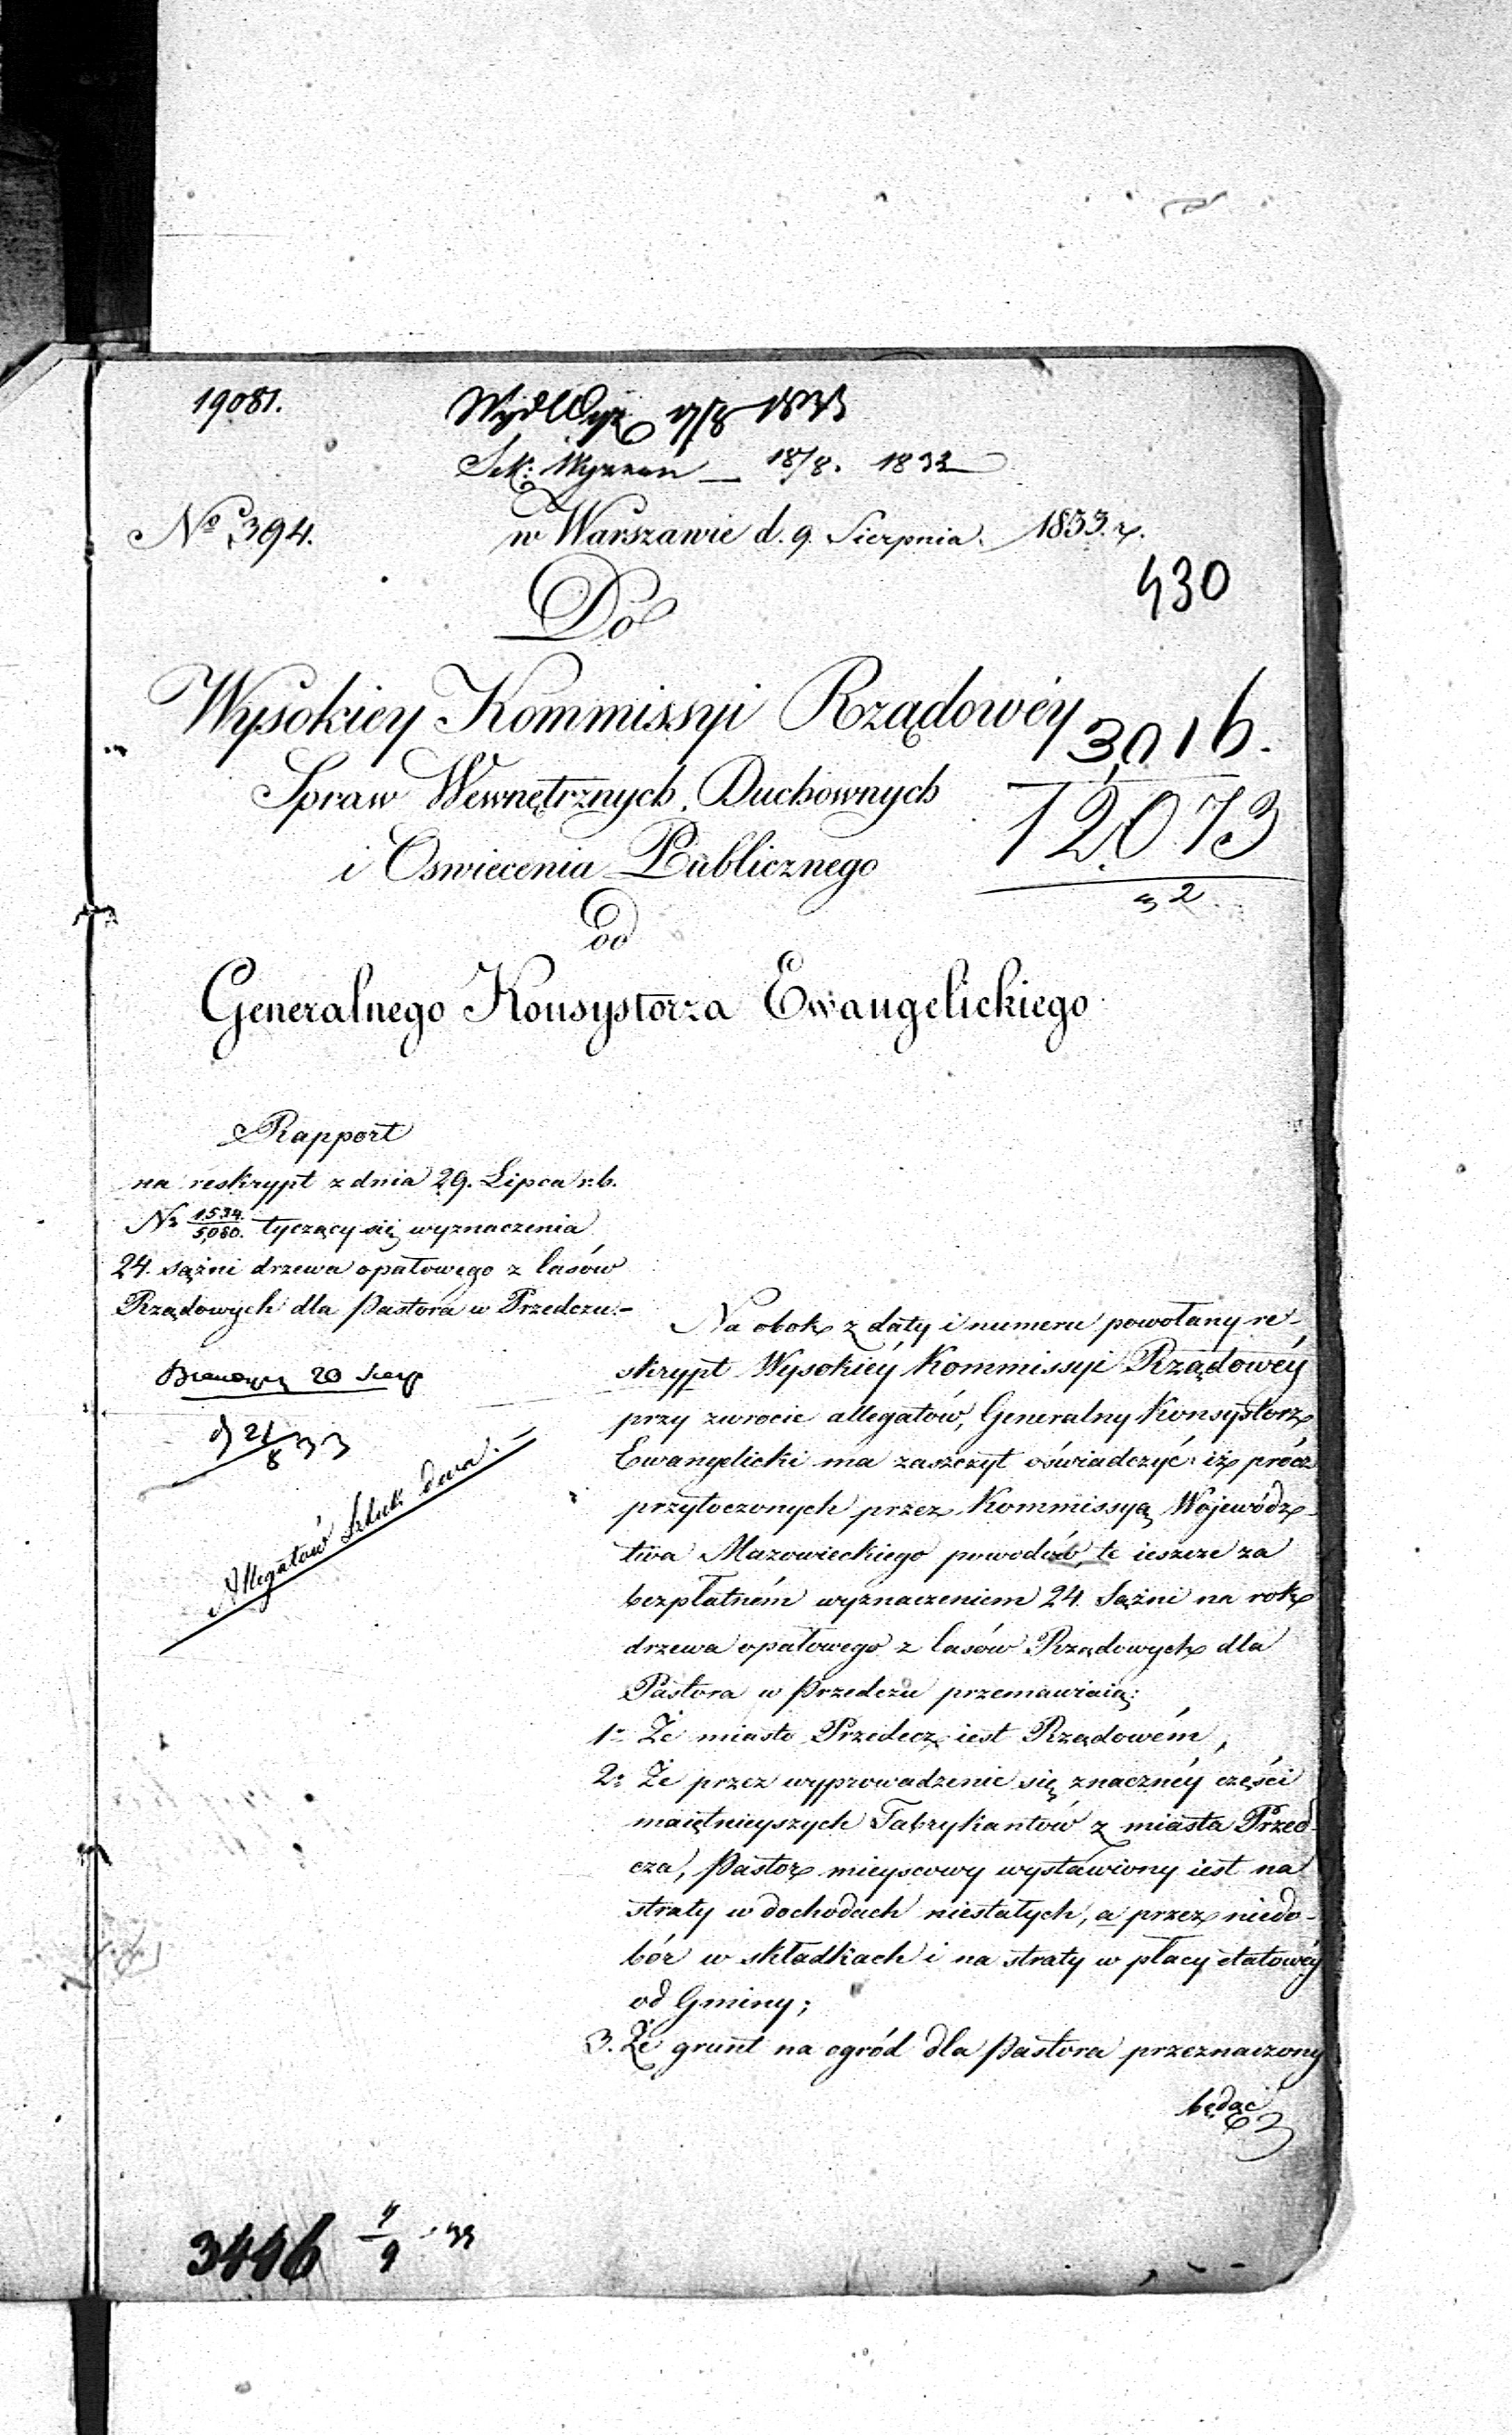 19081.
Wydł Wyz 17/8 1833
Sek: Wyznań — 18/8. 1833
No. 394.
w Warszawie d. 9. Sierpnia. 1833. r.
430
Do
Wysokiey Kommissyi Rządowéy
3016.
Spraw Wewnętrznych, Duchownych
12073
i Oswiecenia Publicznego
32
od
Generalnego Konsystorza Ewangelickiego
Rapport
na reskrypt z dnia 29. Lipca r.b.
Nr 1534./5,060. tyczący się wyznaczenia
24. sążni drzewa opałowego z lasów
Rządowych dla Pastora w Przedczu.-
20 Sierp
21/8 33
Allegatów Sztuk dwa.
Na obok z daty i numeru powołany re-
skrypt Wysokiéy Kommissyi Rządowéy
przy zwrocie allegatów, Generalny Konsystorz
Ewangelicki ma zaszczyt oświadczyć: iż prócz
przytoczonych przez Kommissyą Wojewódz-
twa Mazowieckiego powodów, te ieszcze za
bezpłatném wyznaczeniem 24. Sążni na rok
drzewa opałowego z lasów Rządowych dla
Pastora w Przedczu przemawiaią:
1. Że miasto Przedecz iest Rządowém,
2. Że przez wyprowadzenie się znacznéy części
maiętnieyszych Fabrykantów z miasta Przed-
cza, Pastor mieyscowy wystawiony iest na
straty w dochodach niestałych, a przez niedo-
bór w składkach i na straty w płacy etatowéy
od Gminy;
3. Że grunt na ogród dla Pastora przeznaczony
będąc
3446 4/9 33